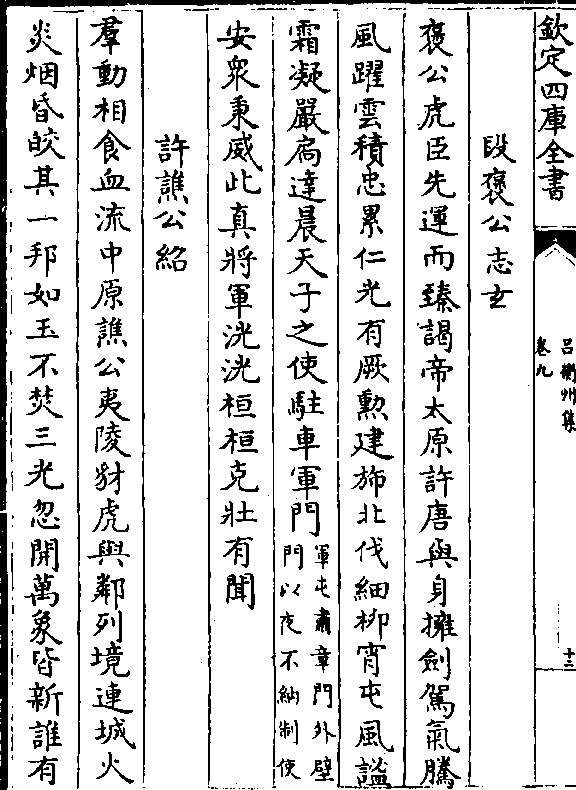 欽定四庫全書
呂衡州集
卷九
十三
段褒公志玄
褒公虎臣先運而臻謁帝太原許唐與身擁劍駕氣騰
風躍雲積忠累仁光有厥勲建斾北伐細柳宵屯風謐
霜凝嚴扃達晨天子之使駐車軍門軍屯肅章門外壁
門以夜不納制使
安衆秉威此真將軍洸洸桓桓克壯有聞
許譙公紹
羣動相食血流中原譙公夷陵豺虎與鄰列境連城火
炎烟昏皎其一邦如玉不焚三光忽開萬象皆新誰有